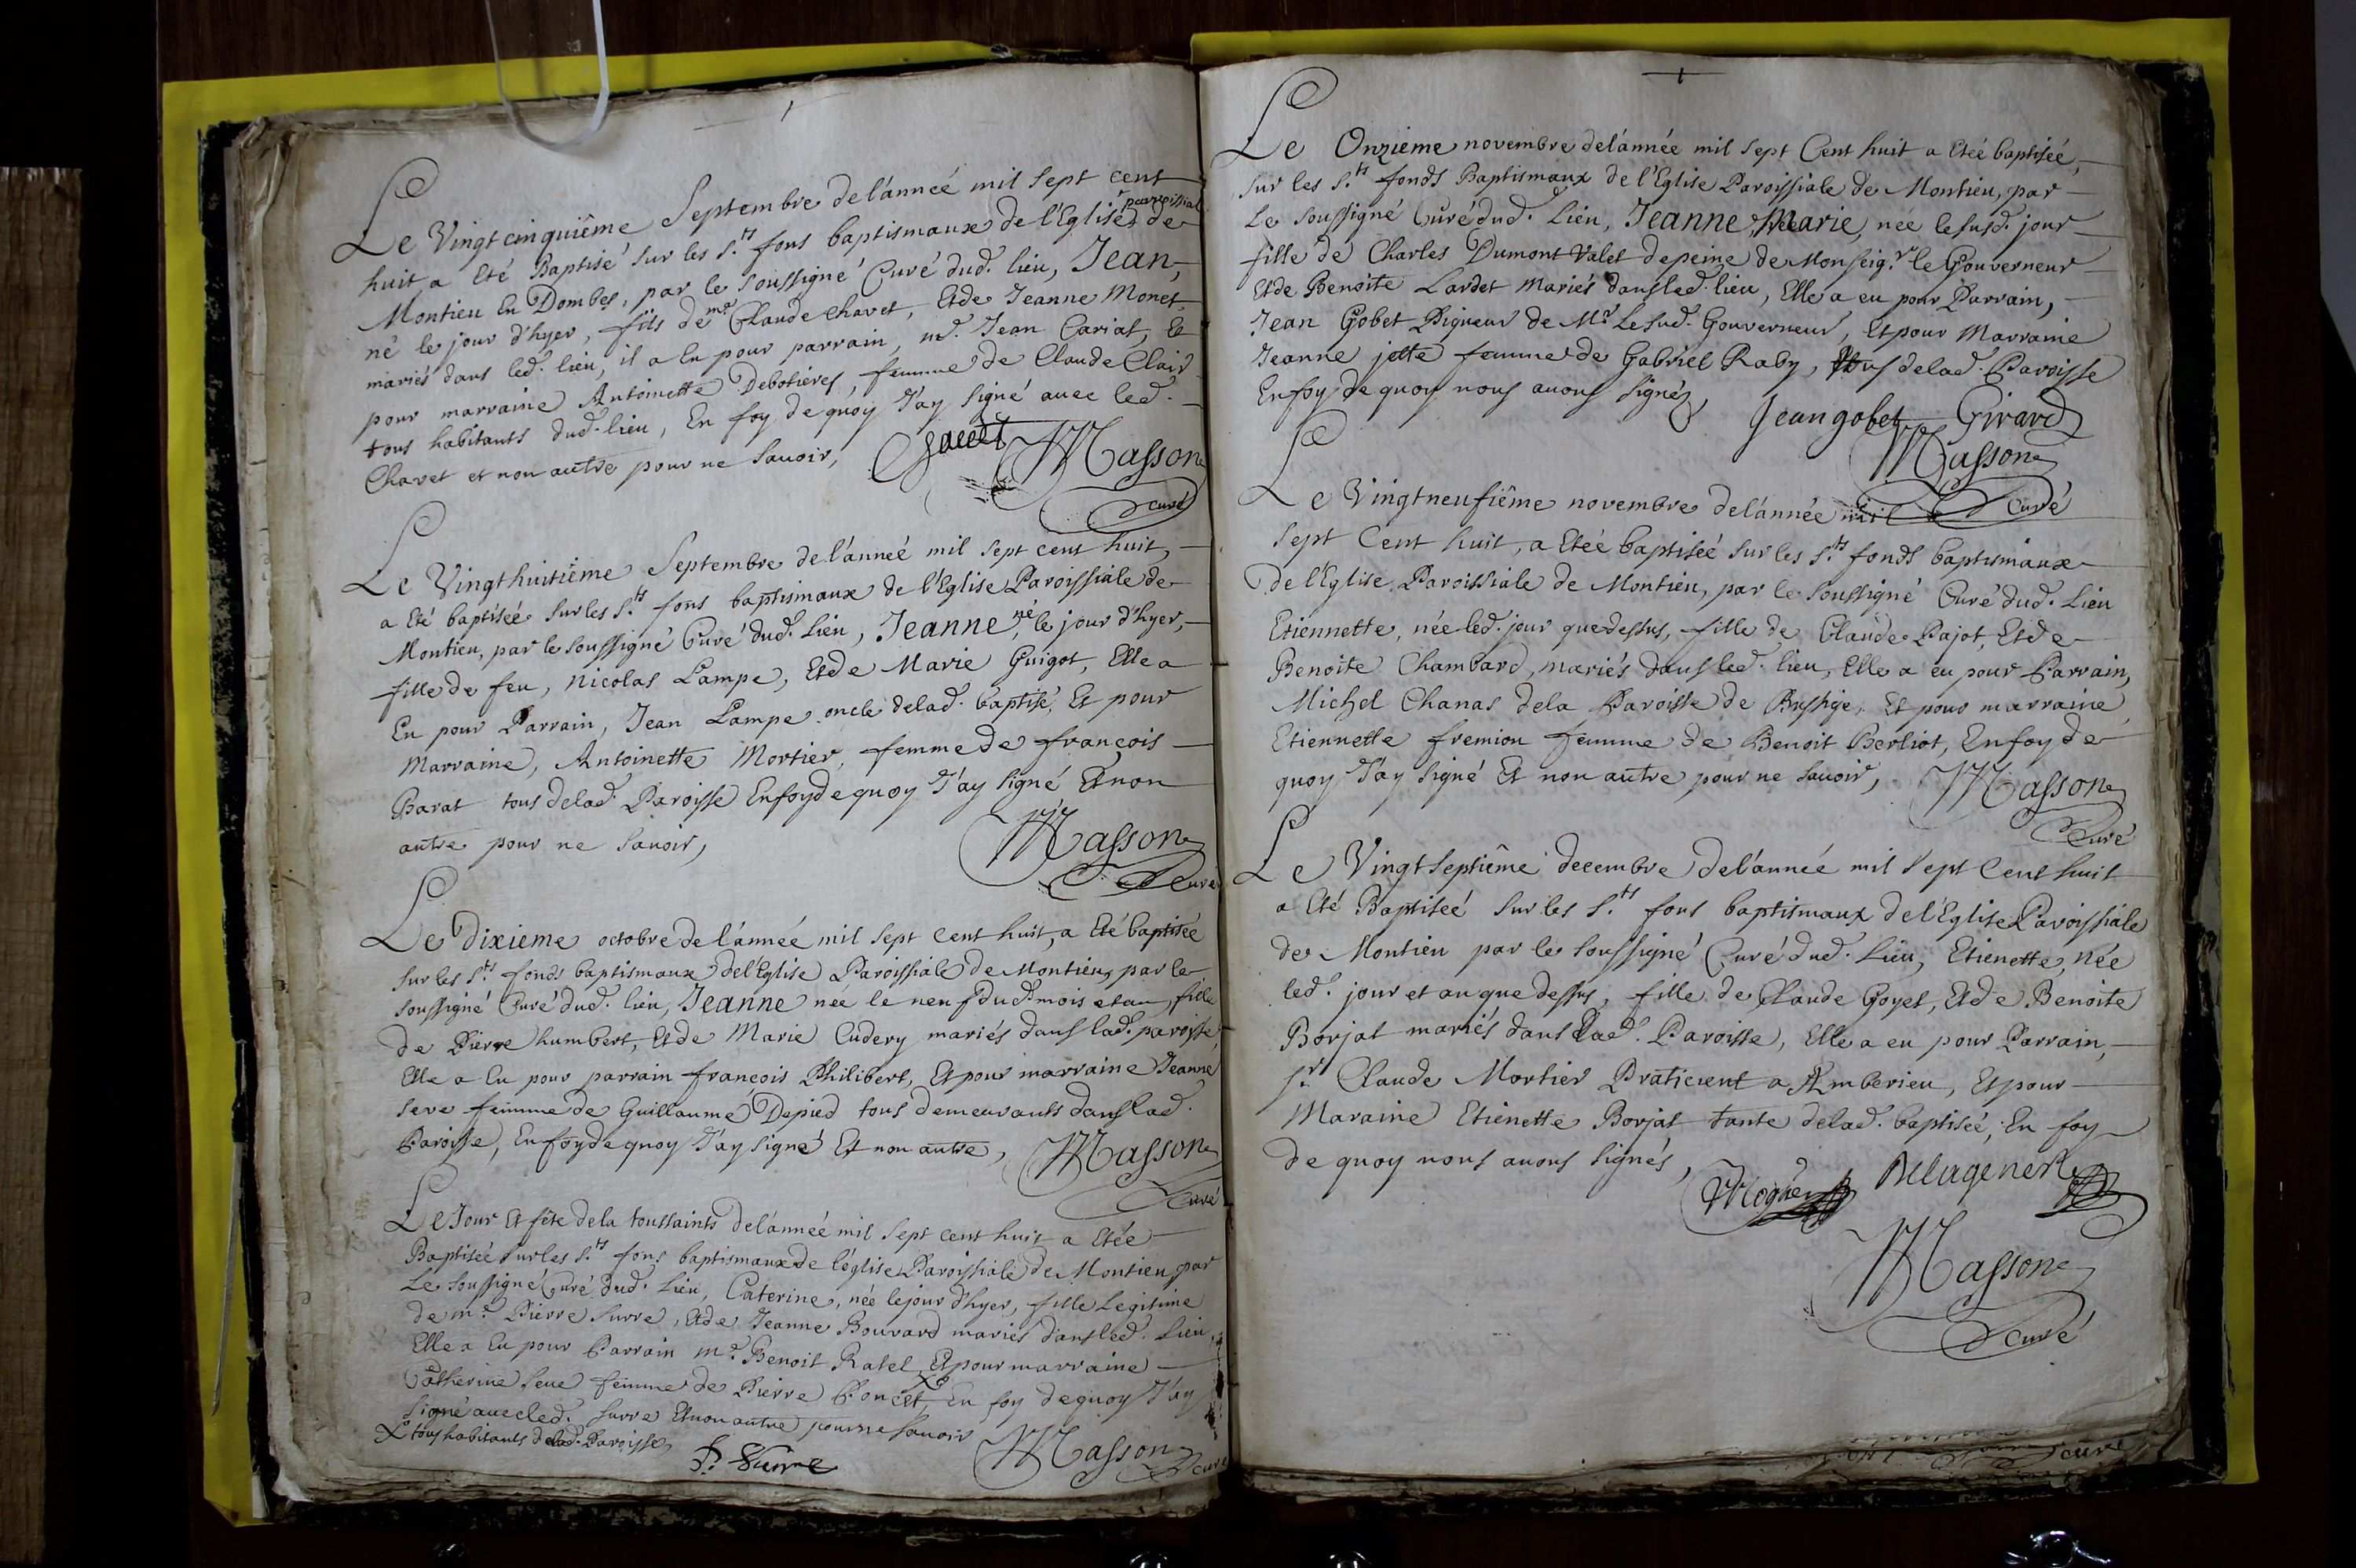 Le Vingt cinquiême Septembre de l'anneé mil sept cent
huit a Eté Baptisé sur les S.ts fons baptismaux de l'Eglise paroissial de
Montieu En Dombes, par le soussigné Curé dud. lieu, Jean,
né le jour d'hyer, fils de Claude chavet, Et de Jeanne Monet
mariés dans led. lieu, il a Eu pour parrain, Jean Cariat, Et
pour marraine Antoinette Debotieres, femme de Claude Clair
tous habitants dud. lieu, En foy de quoy J'ay signé avec led.
Chavet et non autre pour ne savoir,
Masson
curé
Le Vingthuitiême Septembre de l'anneé mil sept cent huit,
a Eté baptiseé sur les S.ts fons baptismaux de l'Eglise Paroissiale de
Montieu, par le soussigné Curé dud. Lieu, Jeanne, né le jour d'hyer,
fille de feu, Nicolas Lampe, Et de Marie Guigot, Elle a
Eu pour Parrain, Jean Lampe oncle delad. baptisé, Et pour
Marraine, Antoinette Mortier, femme de françois
Barat tous delad. Paroisse Enfoy de quoy J'ay signé Et non
autre pour ne savoir,
Masson
Curé
Le Dixieme octobre de l'anneé mil sept cent huit, a Eté baptiseé
sur les S.ts fonds baptismaux del'Eglise Paroissiale de Montieu, par le
soussigné Curé dud. lieu, Jeanne neé le neuf dud. mois et an, fille
de Pierre humbert, Et de Marie Cudery mariés dans lad. paroisse
Elle a Eu pour parrain françois Philibert, Et pour marraine Jeanne
seve femme de Guillaume Depied tous demeurants dans lad.
Paroisse, En foy de quoy J'ay signé Et non autre,
Masson
Curé
Le Jour Et fête dela toussaints de l'anneé mil sept cent huit a Eteé
Baptiseé sur les S.ts fons baptismaux de l'église Paroissiale de Montieu par
Le soussigné Curé dud. Lieu, Caterine, neé le jour d'hyer, fille Legitime
de m.e Pierre surre, Et de Jeanne Bouvard mariés dans led. Lieu,
Elle a Eu pour Parrain Benoit Ratel, Et pour marraine
Catherine seve femme de Pierre Poncet, En foy de quoy J'ay
signé avec led. surre Et non autre pour ne savoir
X tous habitants delad. Paroisse
P. Surre
Masson
Curé
Le Onzieme novembre de l'année mil sept Cent huit a Eteé baptiseé,
sur les S.ts fonds Baptismaux de l'Eglise Paroissiale de Montieu, par
Le soussigné Curé dud. Lieu, Jeanne Marie, neé le susd. jour
fille de Charles Dumont Valet depeine de Monseig.r le Gouverneur
Et de Benoite Lardet Mariés dans led. lieu, Elle a eu pour Parrain,
Jean Gobet Piqueur de M.r Le sud. Gouverneur, Et pour Marraine
Jeanne jette femme de Gabriel Raby, tous delad. Paroisse
En foy de quoy nous avons signés,
Jean gobet Girard
Masson
Curé
Le Vingtneufiême novembre de l'année mil
sept Cent huit, a Eteé baptiseé sur les S.ts fonds baptismaux
de l'Eglise Paroissiale de Montieu, par le soussigné Curé dud. Lieu
Etiennette, née led. jour que dessus, fille de Claude Pajot, Et de
Benoite Chambard, mariés dans led. lieu, Elle a eu pour Parrain,
Michel Chanas dela Paroisse de Et pour marraine
Etiennette fremion femme de Benoit Berliot, En foy de
quoy J'ay signé Et non autre pour ne savoir,
Masson
Curé
Le Vingt septiême decembre de l'année mil sept Cent huit
a Eté Baptiseé sur les S.ts fons baptismaux de l'Eglise Paroissiale
de Montieu par le soussigné Curé dud. Lieu, Etienette, Neé
led. jour et an que dessus, fille de Claude Goyet, Et de Benoite
Borjat mariés dans lad. Paroisse, Elle a eu pour Parrain,
S.r Claude Mortier Praticient a Amberieu, Et pour
Maraine Etienette Borjat tante delad. baptiseé, En foy
de quoy nous avons signés,
Masson
curé
curé